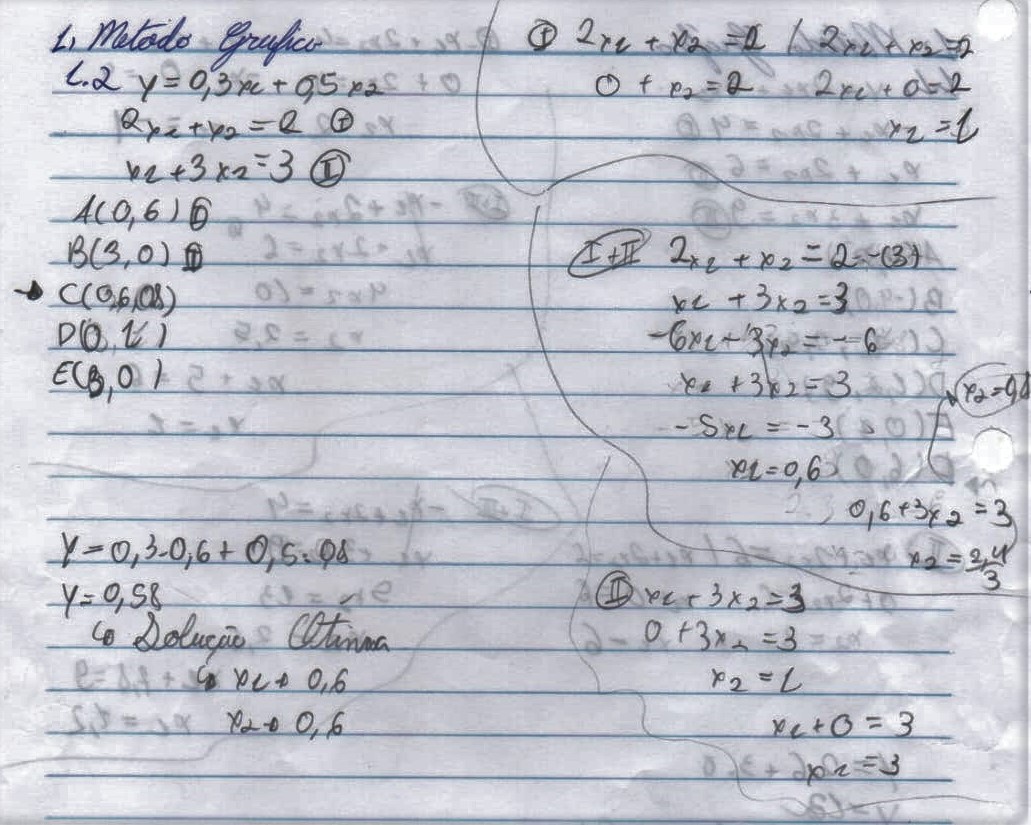 1. Metodo Grafico
1.2 y = 0,3x1 + 0,5x2
2x1 + x2 = 2 (I)
x1 + 3x2 = 3 (II)
A(0,6)
B(3,0)
→ C(0,6,08)
D(0,1)
E(3,0)
Y = 0,3.0,6 + 0,5.08
Y = 0,58
↳ Solução Otinma
↳ x1 → 0,6
x2 → 0,6
(I) 2x1 + x2 = 2 / 2x1 + x2 = 2
0 + x2 = 2 2x1 + 0 = 2
x1 = 1
(I+II) 2x1 + x2 = 2 · -(3)
x1 + 3x2 = 3
-6x1 - 3x2 = -6
x1 + 3x2 = 3
-5x1 = -3
x1 = 0,6
x2 = 0,8
0,6 + 3x2 = 3
x2 = 2,4/3
(II) x1 + 3x2 = 3
0 + 3x2 = 3
x2 = 1
x1 + 0 = 3
x1 = 3